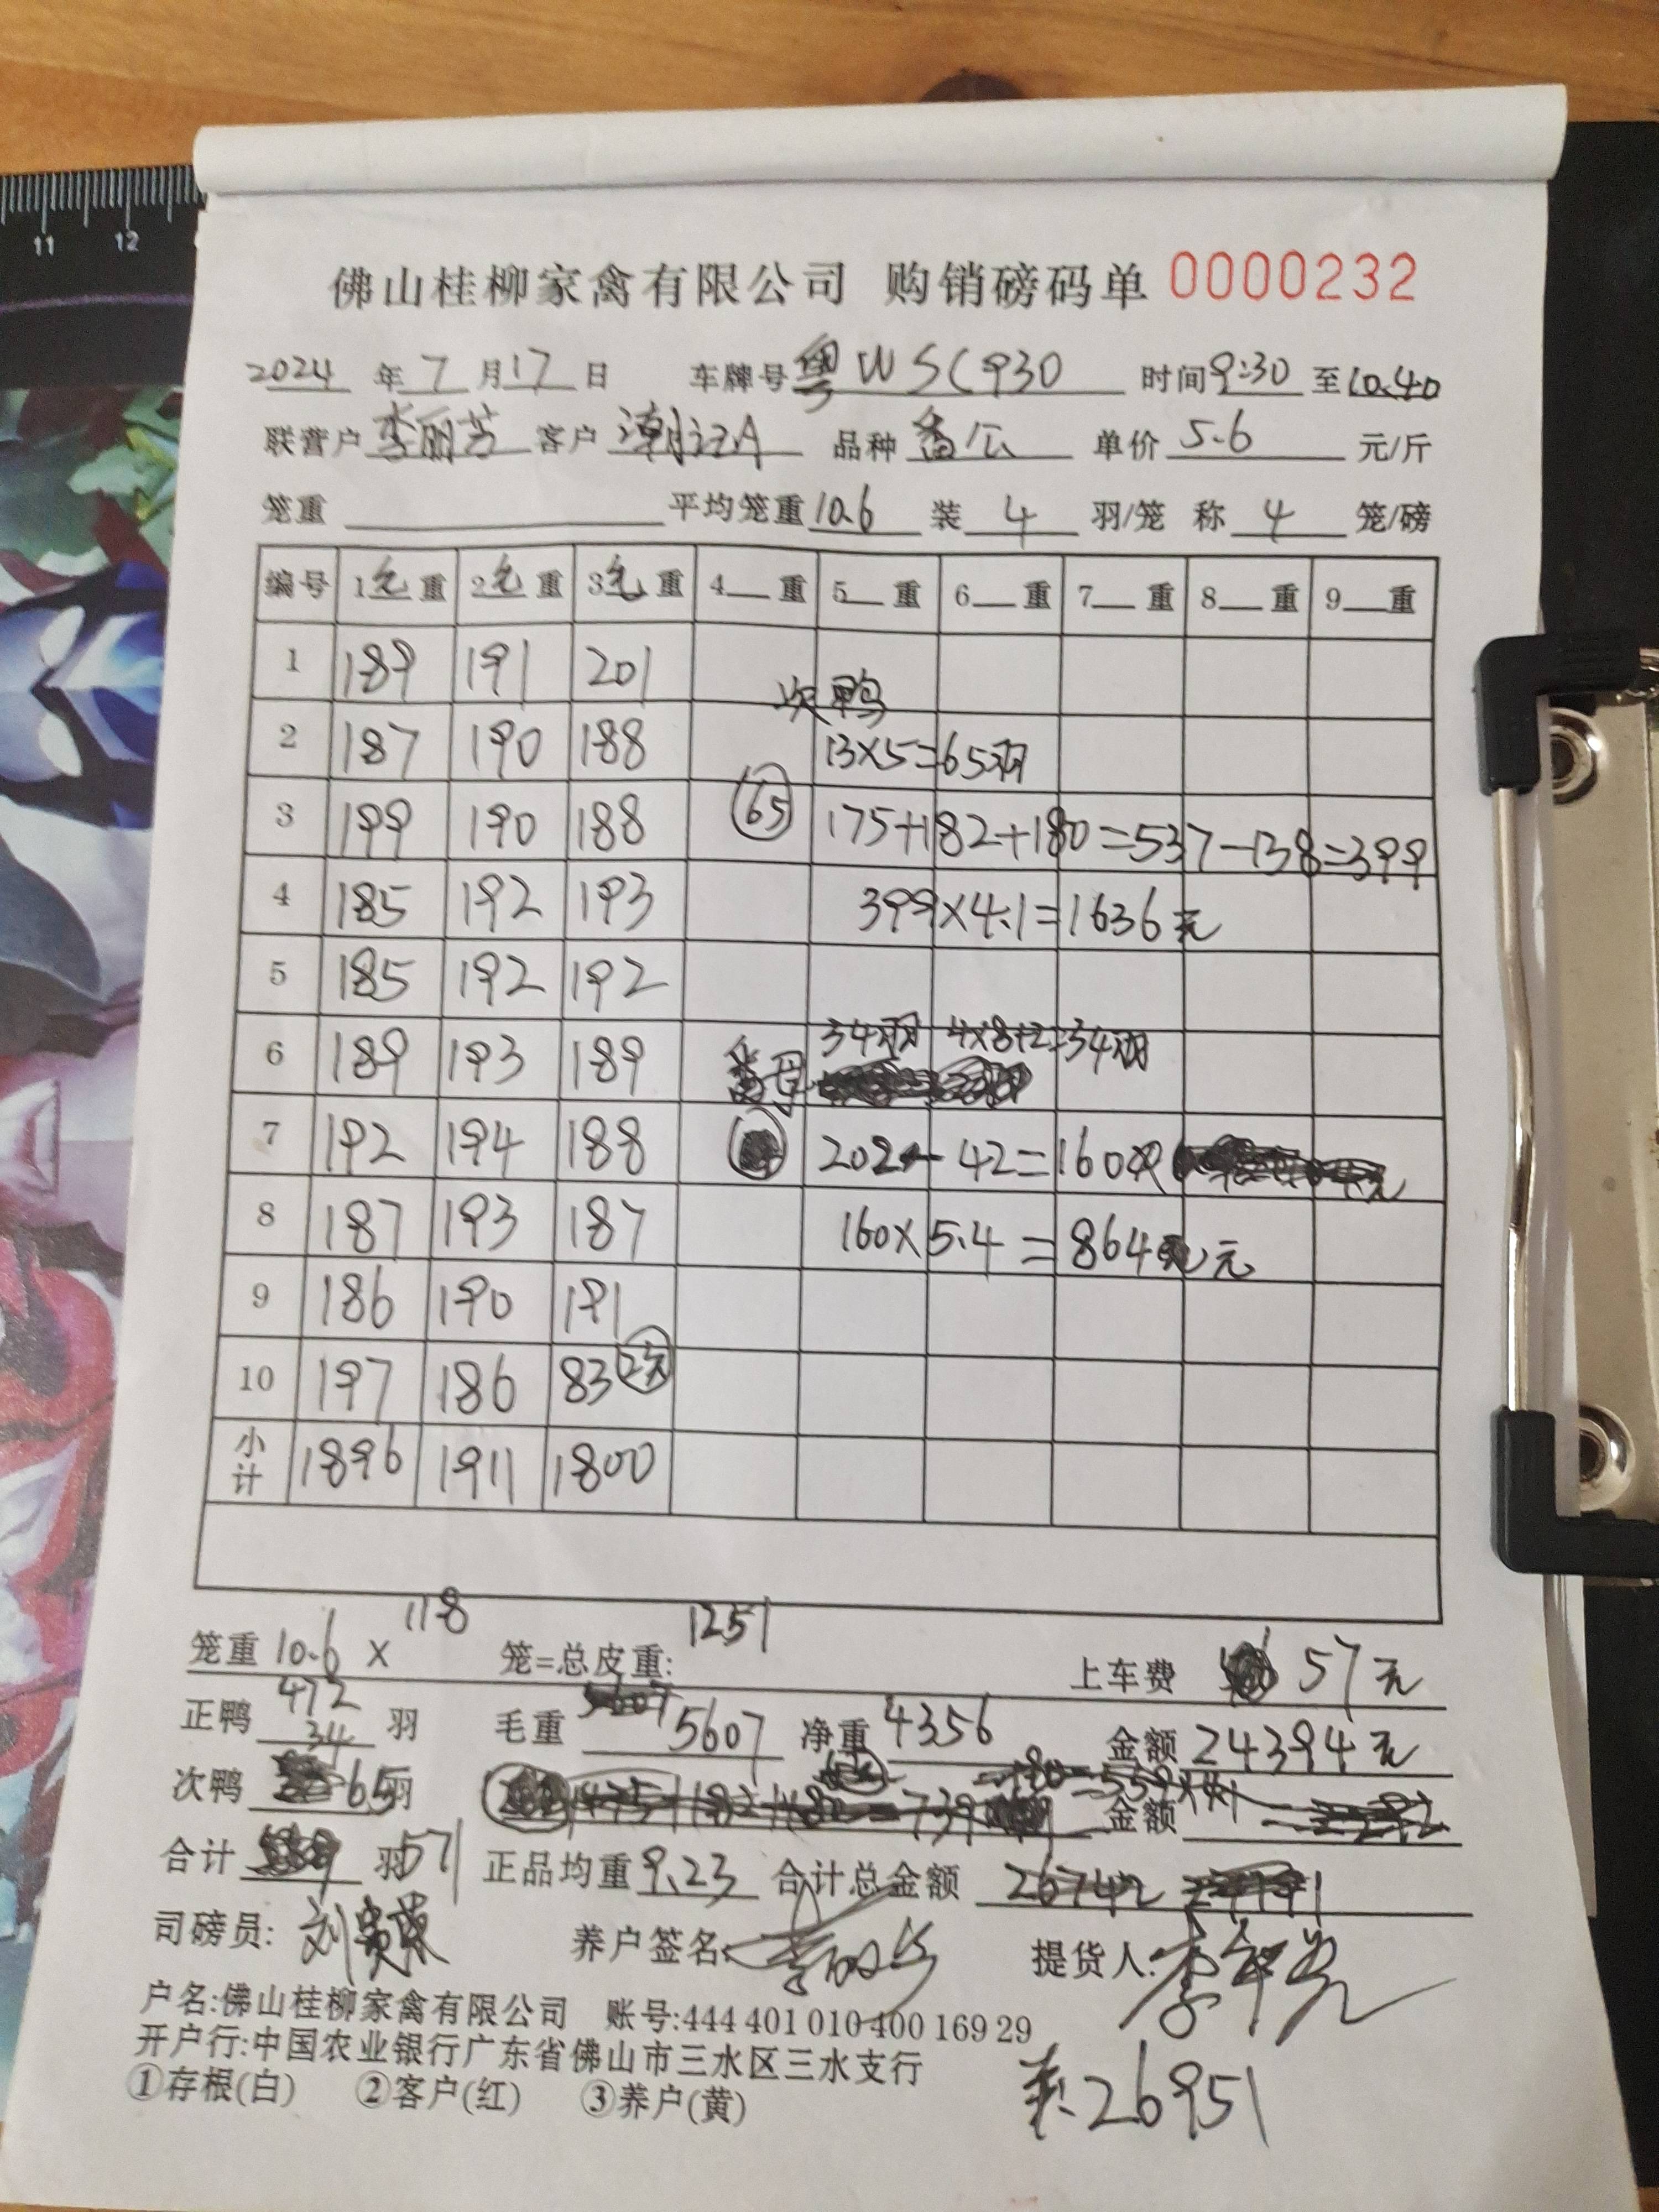 11 12
佛山桂柳家禽有限公司 购销磅码单 0000232
2024 年 7 月 17 日 车牌号 粤WSC930 时间 9:30 至 10.40
联营户 李丽芳 客户 潮记A 品种 番公 单价 5.6 元/斤
笼重 平均笼重 10.6 装 4 羽/笼 称 4 笼/磅
编号 1毛重 2毛重 3毛重 4 重 5 重 6 重 7 重 8 重 9 重
1 189 191 201
次鸭
2 187 190 188 13×5=65羽
3 199 190 188 65 175+182+180=537-138=399
4 185 192 193 399×4.1=1636元
5 185 192 192
34羽 4×8+2=34羽
6 189 193 189 番母
7 192 194 188 202-42=160
8 187 193 187 160×5.4=864元
9 186 190 191
10 197 186 83 2笼
小计 1896 1911 1800
笼重 10.6 × 118 笼=总皮重: 1251 上车费 57元
正鸭 472 34 羽 毛重 5607 净重 4356 金额 24394元
次鸭 65羽 金额
合计 羽 571 正品均重 9.23 合计总金额
司磅员: 刘 养户签名: 李丽芳 提货人: 李
户名:佛山桂柳家禽有限公司 账号:444 401 010 400 169 29
开户行:中国农业银行广东省佛山市三水区三水支行
①存根(白) ②客户(红) ③养户(黄)
26951